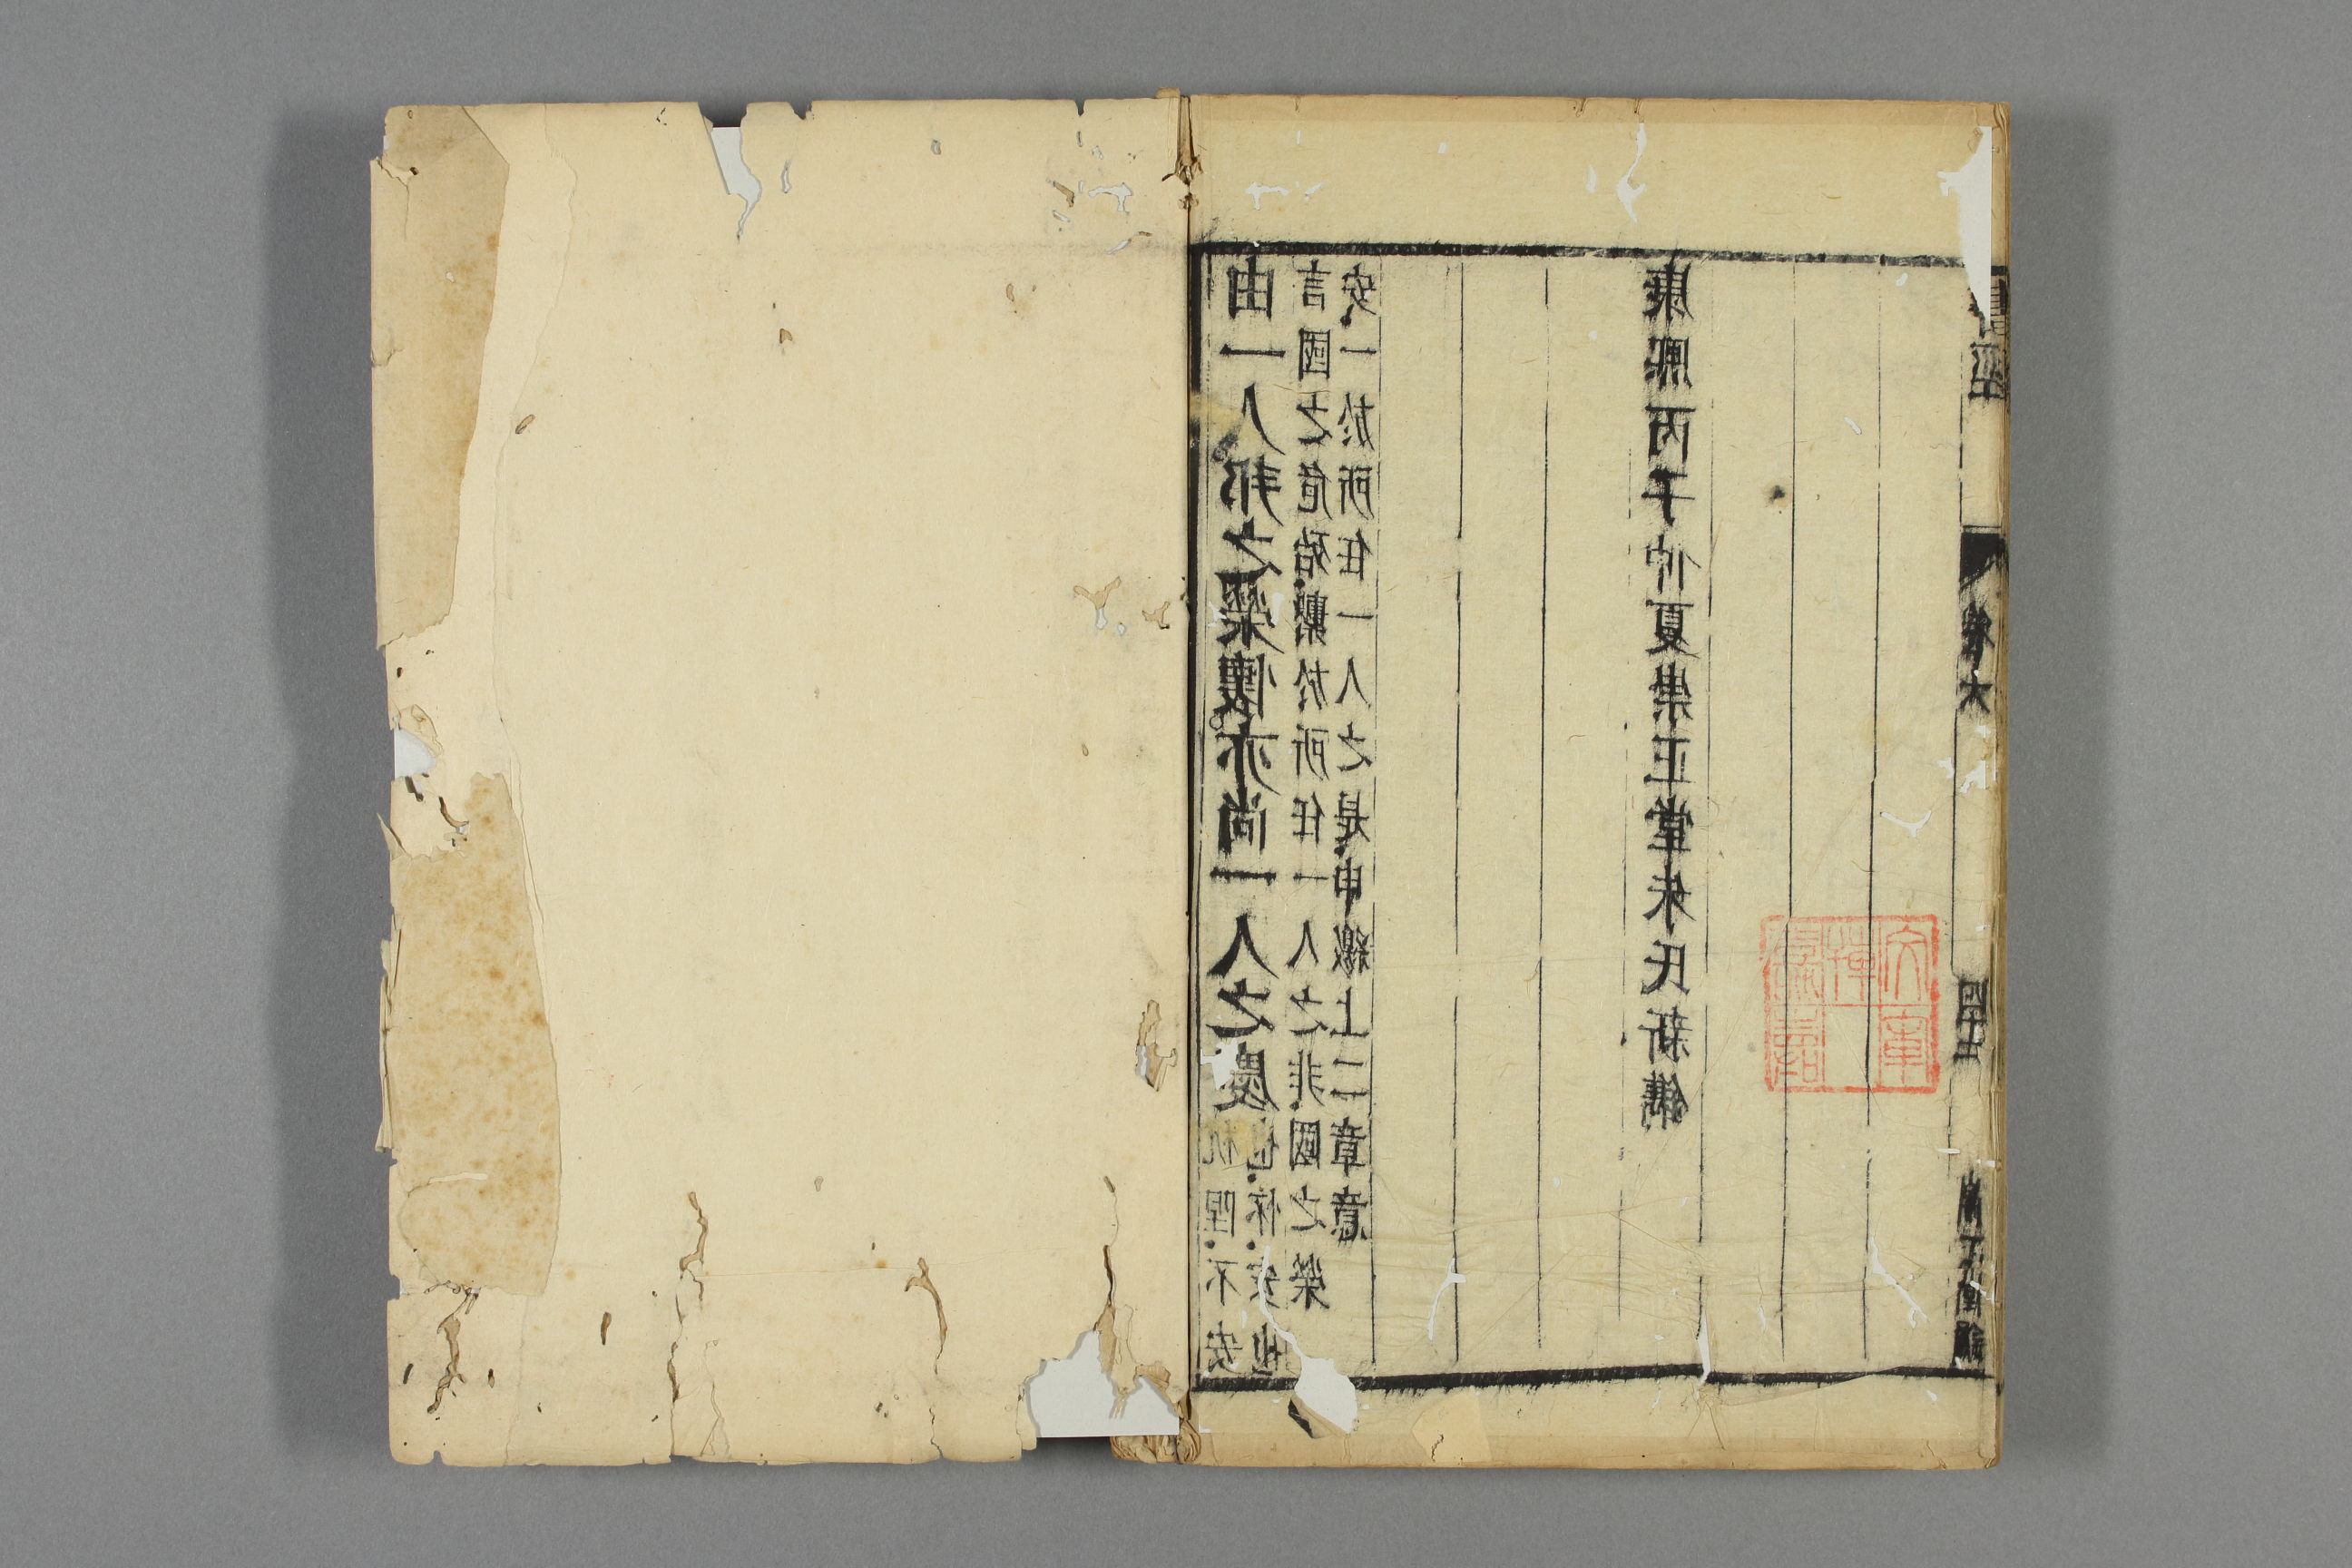 由一人邦之榮懷亦尚一人之慶
杌隉不安
也怀安也
言國之危殆繫於所任一人之非國之榮
安一於所任一人之是申繳上二章意
康熙丙子仲夏崇正堂朱氏新鐫
書經 卷六 四十五